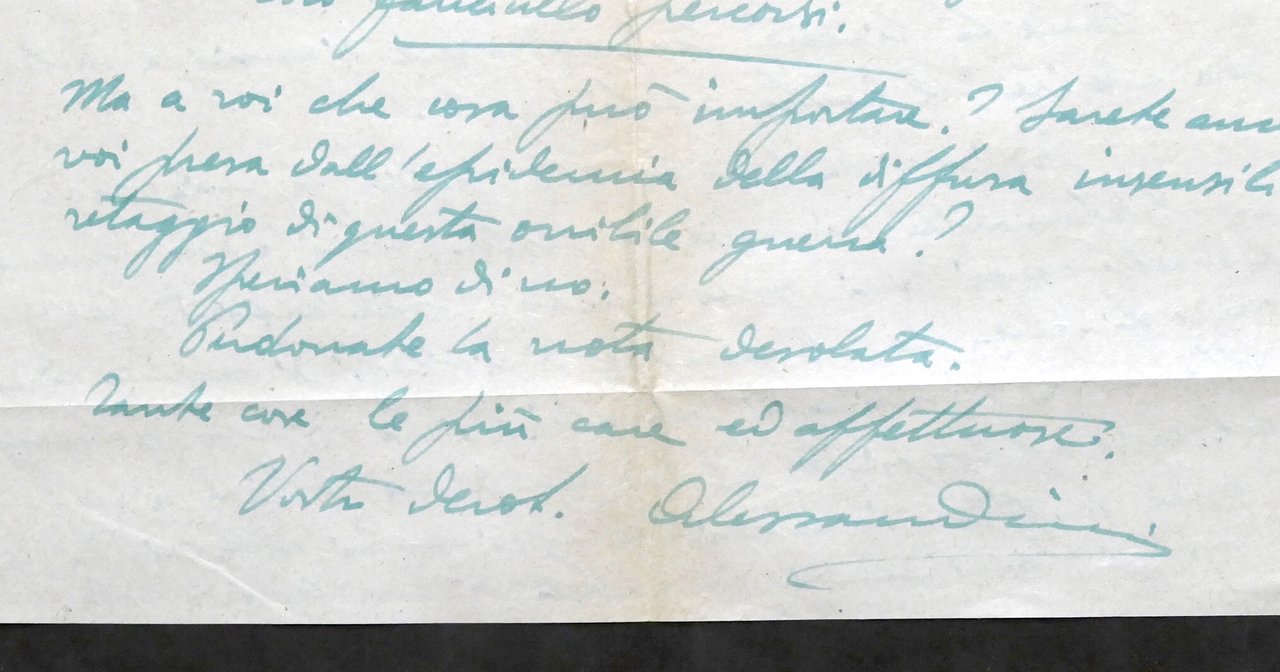 fanciullo percorsi.
Ma a voi che cosa può importare? Sarete anc
voi presa dall'epidemia della diffusa insensibi
retaggio di questa orribile guerra?
Speriamo di no.
Perdonate la nota desolata.
Tante cose le più care ed affettuose.
Vostro devot. Alessandrini